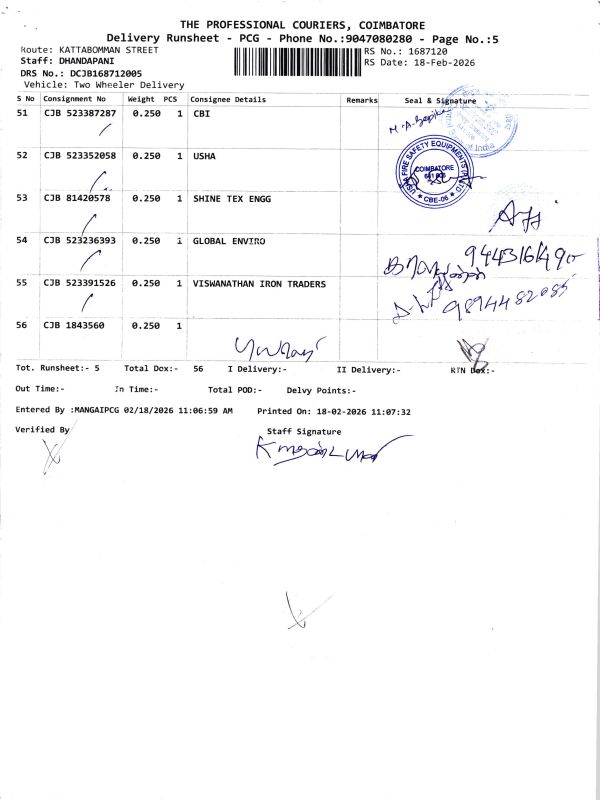 THE PROFESSIONAL COURIERS, COIMBATORE
Delivery Runsheet - PCG - Phone No.:9047080280 - Page No.:5
Route: KATTABOMMAN STREET
Staff: DHANDAPANI
DRS No.: DCJB168712005
Vehicle: Two Wheeler Delivery
RS No.: 1687120
RS Date: 18-Feb-2026
S No Consignment No Weight PCS Consignee Details Remarks Seal & Signature
51 CJB 523387287 0.250 1 CBI
52 CJB 523352058 0.250 1 USHA
USHA FIRE SAFETY EQUIPMENTS (P) LTD
COIMBATORE
CBE-06
53 CJB 81420578 0.250 1 SHINE TEX ENGG
54 CJB 523236393 0.250 1 GLOBAL ENVIRO
55 CJB 523391526 0.250 1 VISWANATHAN IRON TRADERS
9894482085
56 CJB 1843560 0.250 1
Tot. Runsheet:- 5 Total Dox:- 56 I Delivery:- II Delivery:- RTN Dox:-
Out Time:- In Time:- Total POD:- Delvy Points:-
Entered By :MANGAIPCG 02/18/2026 11:06:59 AM Printed On: 18-02-2026 11:07:32
Verified By Staff Signature